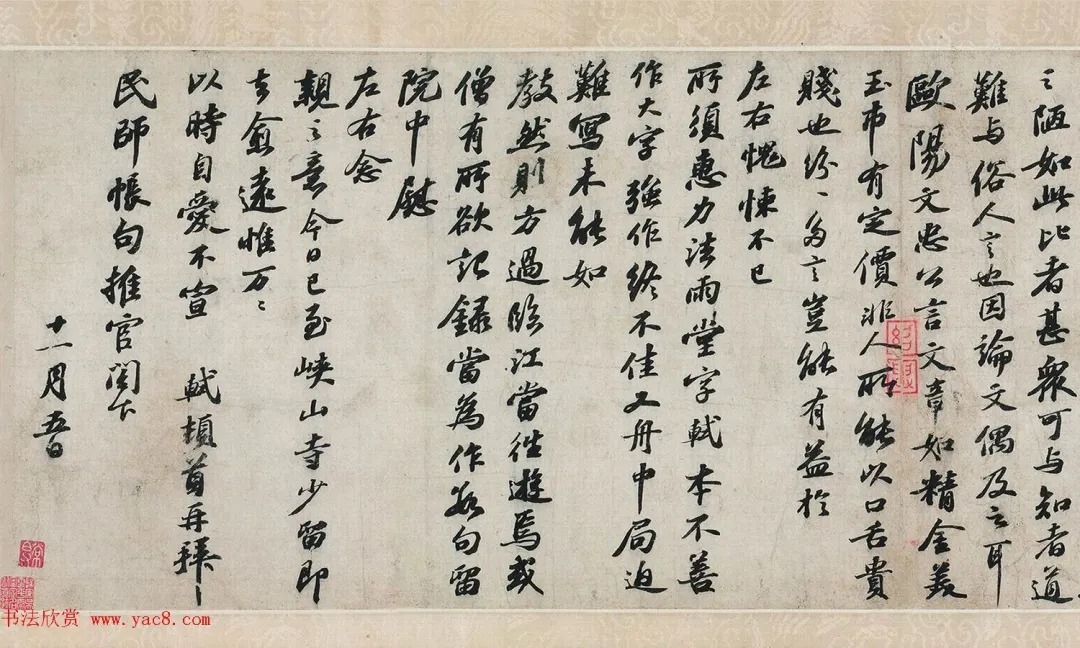 之陋如此比者甚眾可与知者道
難与俗人言也因論文偶及之耳
歐陽文忠公言文章如精金美
玉市有定價非人所能以口舌貴
賤也紛〻多言豈能有益於
左右愧悚不已
所須惠力法雨堂字軾本不善
作大字強作終不佳又舟中局迫
難寫未能如
教然則方過臨江當往遊焉或
僧有所欲記錄當為作數句留
院中慰
左右念
親之意今日已至峽山寺少留即
去愈遠惟万〻
以時自愛不宣 軾頓首再拜
民師帳句推官閣下
十一月五日
书法欣赏 www.yac8.com